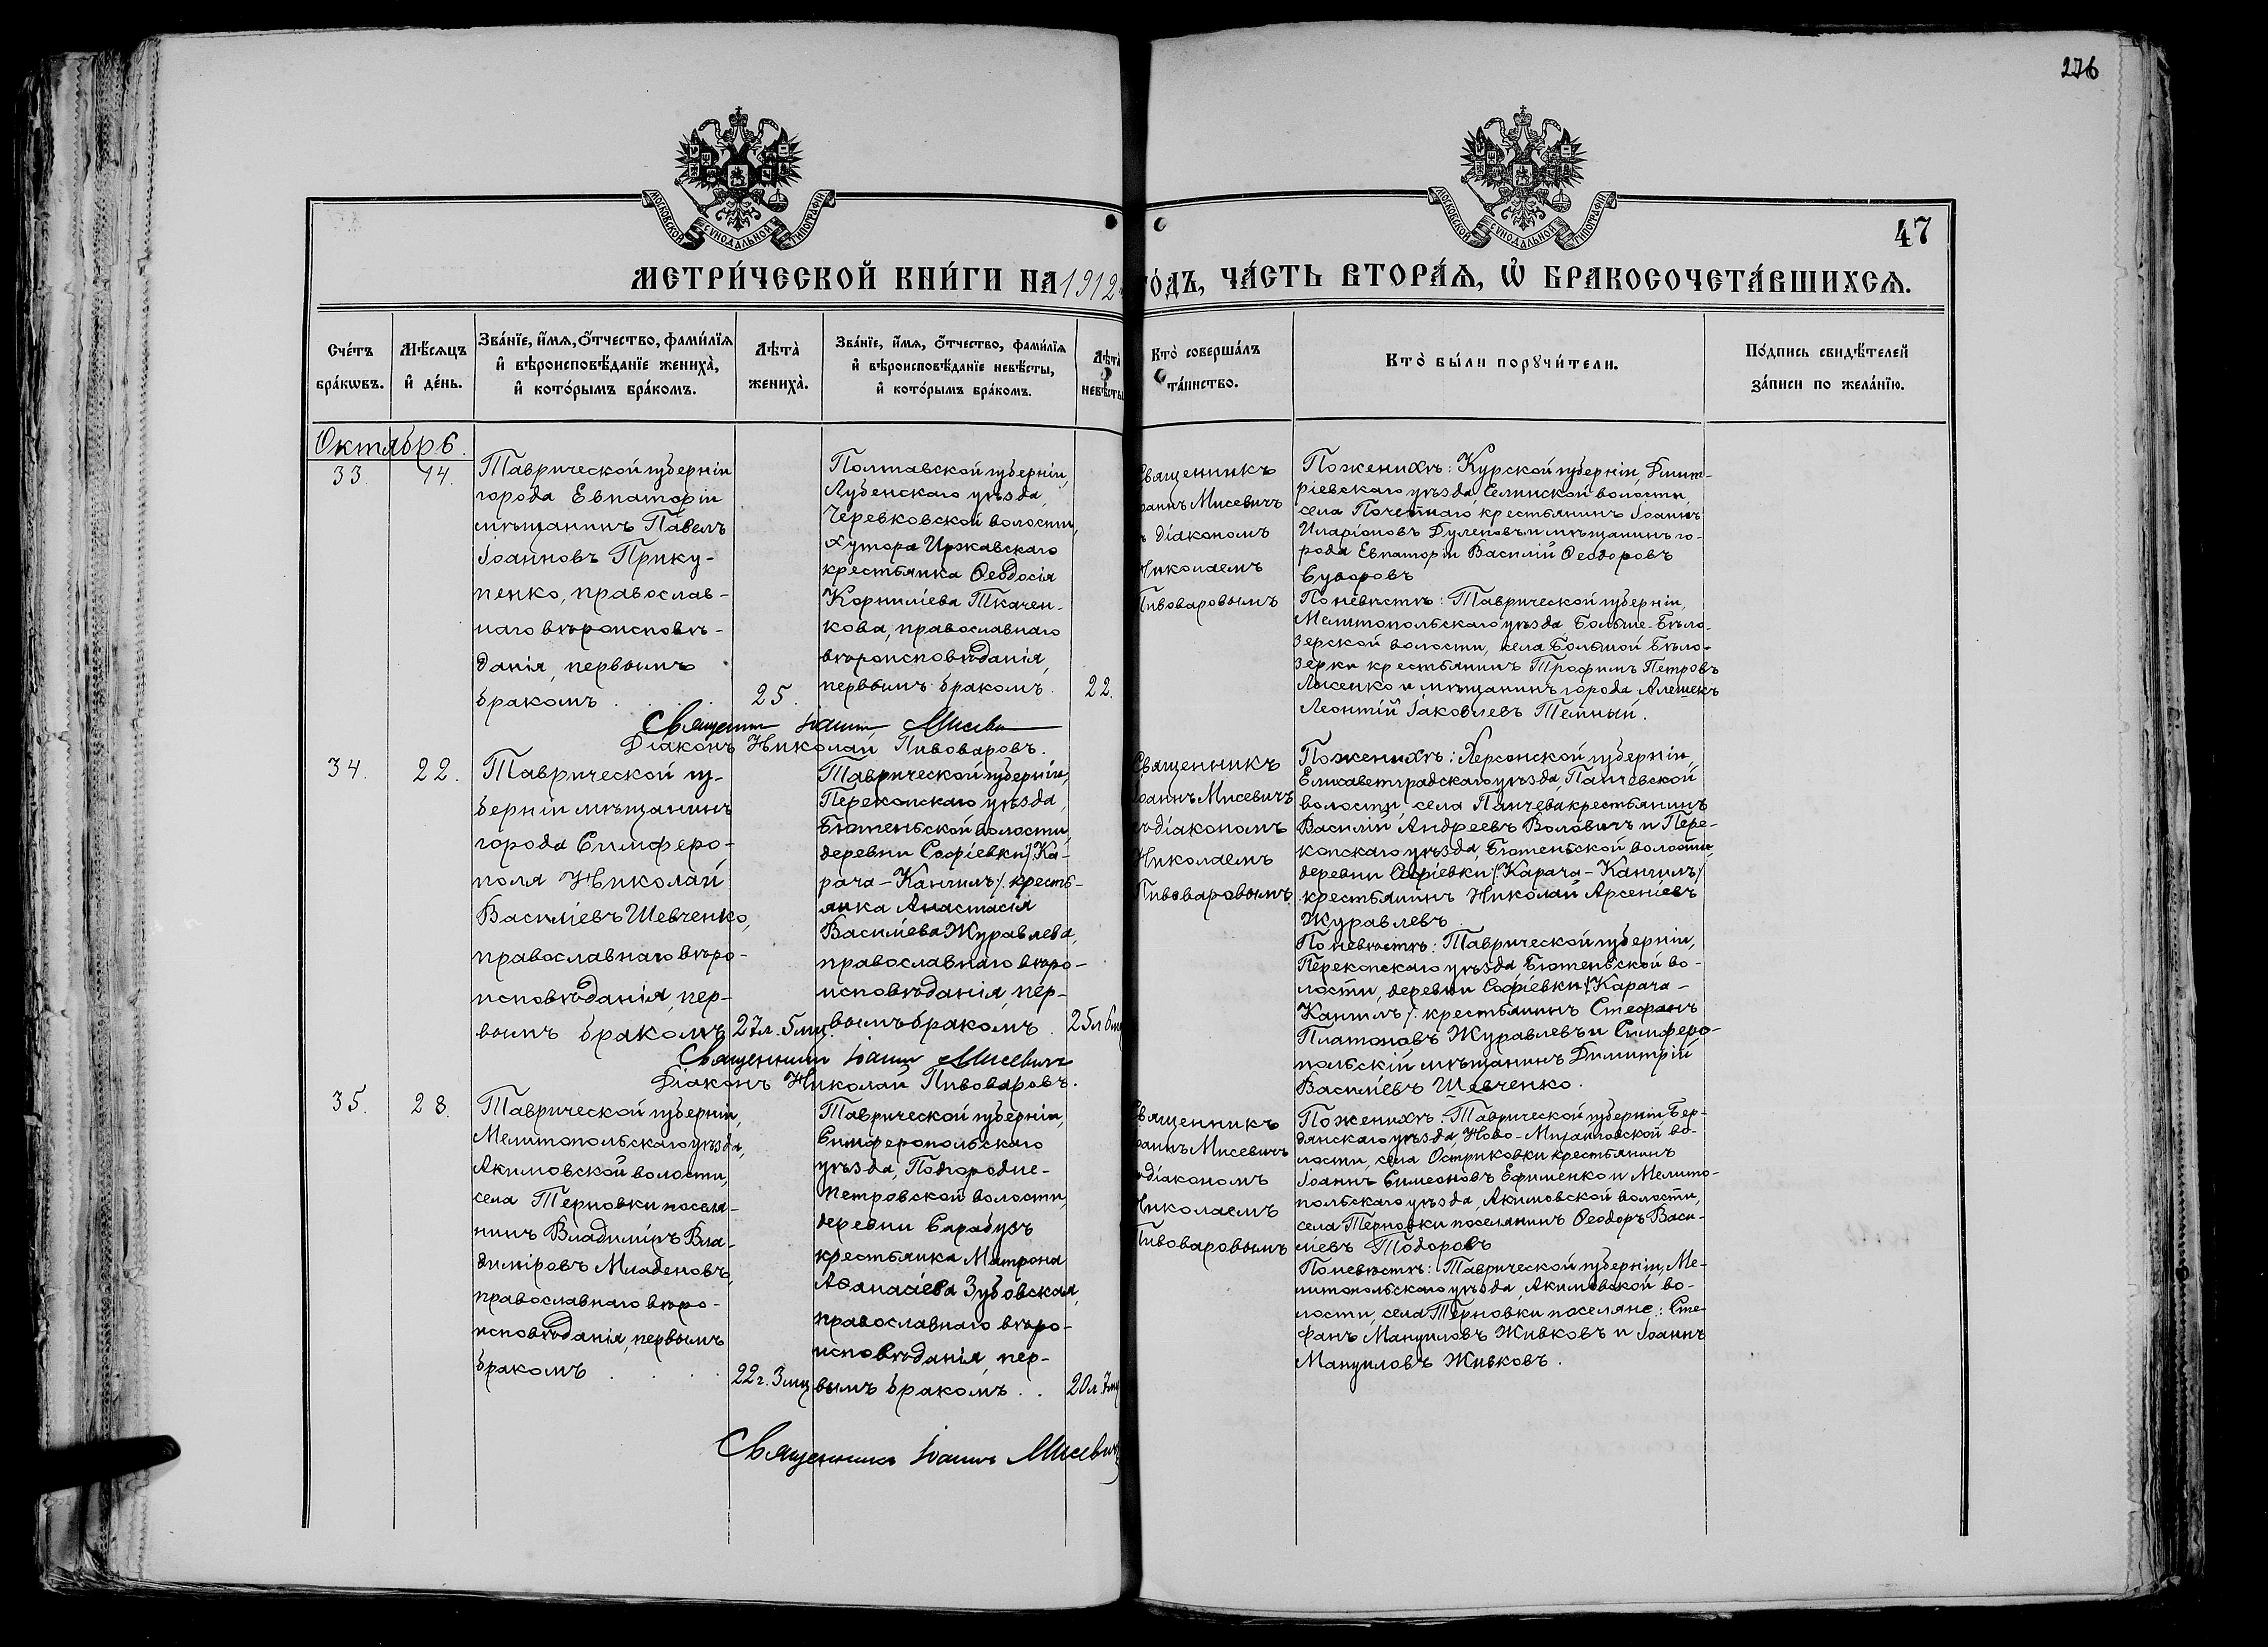 276
МОСКОВСКОЙ СУНОДАЛЬНОЙ ТИПОГРАФІИ
МОСКОВСКОЙ СУНОДАЛЬНОЙ ТИПОГРАФІИ
47
МЕТРИ́ЧЕСКОЙ КНИ́ГИ НА 1912 ГО́ДЪ, ЧА́СТЬ ВТОРА́Я, Ѽ БРАКОСОЧЕТА́ВШИХСЯ.
Сче́тъ бра́кѡвъ.
Мѣ́сяцъ и҆ де́нь.
Зва́нїе, и҆́мя, ѻ҆́тчество, фами́лїя и҆ вѣроисповѣ́данїе жениха̀, и҆ кото́рымъ бра́комъ.
Лѣта̀ жениха̀.
Зва́нїе, и҆́мя, ѻ҆́тчество, фами́лїя и҆ вѣроисповѣ́данїе невѣ́сты, и҆ кото́рымъ бра́комъ.
Лѣта̀ невѣ́сты
Кто̀ соверша́лъ та́инство.
Кто̀ бы́ли порꙋчи́тели.
По́дпись свидѣ́телей за́писи по жела́нїю.
Октябрь.
33.
14.
Таврической губерніи
города Евпаторіи
мѣщанинъ Павелъ
Іоанновъ Прику-
пенко, православ-
наго вѣроисповѣ-
данія, первымъ
бракомъ
25.
Полтавской губерніи,
Лубенскаго уѣзда,
Черевковской волости,
хутора Иржавскаго
крестьянка Ѳеодосія
Корниліева Ткачен-
кова, православнаго
вѣроисповѣданія,
первымъ бракомъ.
22.
Священникъ
Іоаннъ Мисевичъ
съ діакономъ
Николаемъ
Пивоваровымъ
По женихѣ: Курской губерніи, Дмит-
ріевскаго уѣзда, Селинской волости,
села Почепнаго крестьянинъ Іоаннъ
Иларіоновъ Дулеповъ и мѣщанинъ го-
рода Евпаторіи Василій Ѳеодоровъ
Суворовъ
По невѣстѣ: Таврической губерніи,
Мелитопольскаго уѣзда Больше-Бѣло-
зерской волости, села Большой Бѣло-
зерки крестьянинъ Трофимъ Петровъ
Лысенко и мѣщанинъ города Алешекъ
Леонтій Іаковлевъ Темный.
Священникъ Іоаннъ Мисевичъ
Діаконъ Николай Пивоваровъ.
34.
22.
Таврической гу-
берніи мѣщанинъ
города Симферо-
поля Николай
Василіевъ Шевченко,
православнаго вѣро-
исповѣданія, пер-
вымъ бракомъ
27л. 5мц.
Таврической губерніи,
Перекопскаго уѣзда,
Бютеньской волости,
деревни Софіевки /Ка-
рача-Кангилъ/ кресть-
янка Анастасія
Василіева Журавлева,
православнаго вѣро-
исповѣданія, пер-
вымъ бракомъ.
25л 6мц
Священникъ
Іоаннъ Мисевичъ
съ діакономъ
Николаемъ
Пивоваровымъ
По женихѣ: Херсонской губерніи,
Елисаветградскаго уѣзда, Панчевской
волости, села Панчева крестьянинъ
Василій Андреевъ Воловичъ и Пере-
копскаго уѣзда, Бютеньской волости,
деревни Софіевки /Карача-Кангилъ/
крестьянинъ Николай Арсеніевъ
Журавлевъ.
По невѣстѣ: Таврической губерніи,
Перекопскаго уѣзда Бютеньской во-
лости, деревни Софіевки /Карача-
Кангилъ/ крестьянинъ Стефанъ
Платоновъ Журавлевъ и Симферо-
польскій мѣщанинъ Димитрій
Василіевъ Шевченко.
Священникъ Іоаннъ Мисевичъ
Діаконъ Николай Пивоваровъ.
35.
28.
Таврической губерніи,
Мелитопольскаго уѣзда,
Акимовской волости,
села Терновки поселя-
нинъ Владиміръ Вла-
диміровъ Младеновъ,
православнаго вѣро-
исповѣданія, первымъ
бракомъ
22г. 3мц
Таврической губерніи,
Симферопольскаго
уѣзда, Подгородне-
Петровской волости,
деревни Сарабузъ
крестьянка Матрона
Аѳанасіева Зубовская,
православнаго вѣро-
исповѣданія, пер-
вымъ бракомъ..
20л 7мц
Священникъ
Іоаннъ Мисевичъ
съ діакономъ
Николаемъ
Пивоваровымъ
По женихѣ: Таврической губерніи Бер-
дянскаго уѣзда, Ново-Михайловской во-
лости, села Остриковки крестьянинъ
Іоаннъ Симеоновъ Ефименко и Мелито-
польскаго уѣзда, Акимовской волости,
села Терновки поселянинъ Ѳеодоръ Васи-
ліевъ Тодоровъ
По невѣстѣ: Таврической губерніи, Ме-
литопольскаго уѣзда, Акимовской во-
лости, села Терновки поселяне: Сте-
фанъ Мануиловъ Живковъ и Іоаннъ
Мануиловъ Живковъ.
Священникъ Іоаннъ Мисевичъ